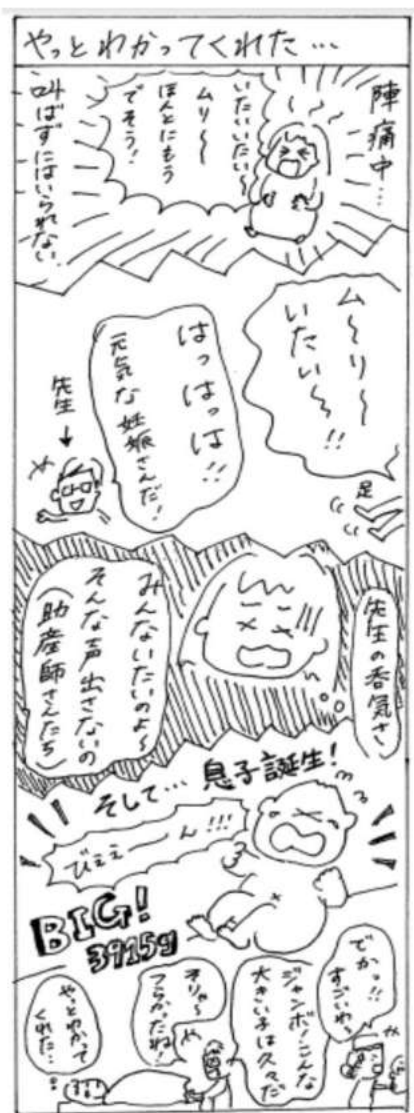 やっとわかってくれた…
陣痛中…
いたいいたい〜
ムリ〜〜
ほんとにもう
でそう！
叫ばずにはいられない
ム〜リ〜〜
いたい〜〜!!
足
はっはっは!!
元気な妊娠さんだ！
先生→
先生の呑気さ
みんないたいのよ〜
そんな声出さないの
(助産師さんたち)
そして…息子誕生！
びええーーん!!!
BIG!
3915g
でかっ!!
すごいわっ
ジャンボ！こんな
大きい子は久々だ
そりゃ〜
つらかったね！
やっとわかって
くれた…